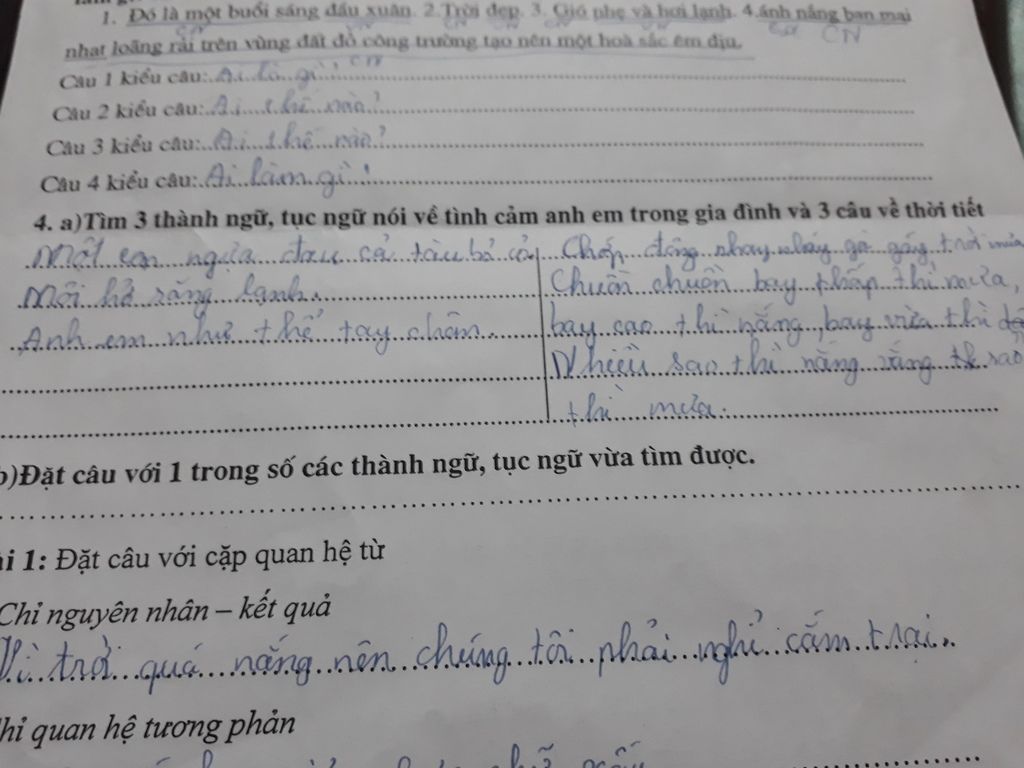 1. Đó là một buổi sáng đầu xuân. 2.Trời đẹp. 3. Gió nhẹ và hơi lạnh. 4.ánh nắng ban mai
nhạt loãng rải trên vùng đất đỏ công trường tạo nên một hoà sắc êm dịu.
Câu 1 kiểu câu: Ai là gì?
Câu 2 kiểu câu: Ai thế nào?
Câu 3 kiểu câu: Ai thế nào?
Câu 4 kiểu câu: Ai làm gì?
4. a)Tìm 3 thành ngữ, tục ngữ nói về tình cảm anh em trong gia đình và 3 câu về thời tiết
Một con ngựa đau cả tàu bỏ cỏ
Môi hở răng lạnh.
Anh em như thể tay chân.
Chớp đông nhay nháy gà gáy trời mưa
Chuồn chuồn bay thấp thì mưa,
bay cao thì nắng, bay vừa thì
Nhiều sao thì nắng vắng sao
thì mưa.
b)Đặt câu với 1 trong số các thành ngữ, tục ngữ vừa tìm được.
1: Đặt câu với cặp quan hệ từ
Chỉ nguyên nhân – kết quả
Vì trời quá nắng nên chúng tôi phải nghỉ cắm trại.
Chỉ quan hệ tương phản